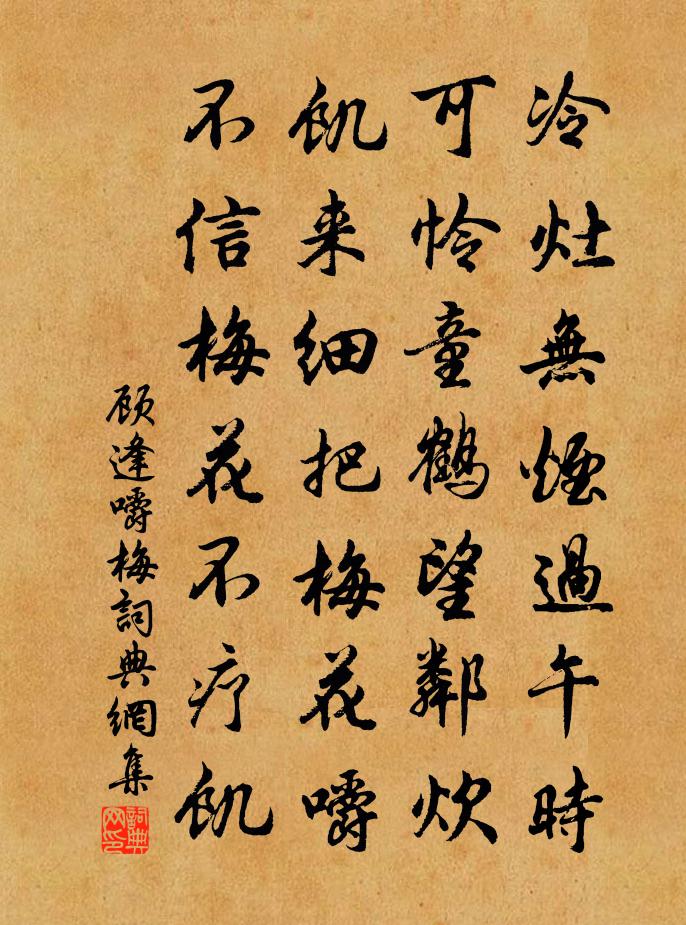 冷灶無煙過午時
可怜童鶴望鄰炊
飢来细把梅花嚼
不信梅花不疗飢
顾逢嚼梅詞典網集
詞典网印